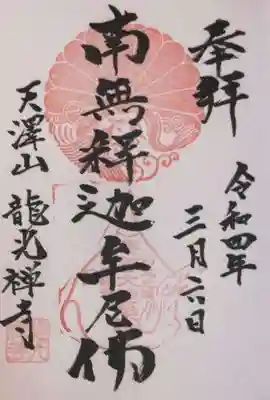 奉拝
令和四年
三月六日
南無釋迦牟尼佛
天澤山 龍光禅寺